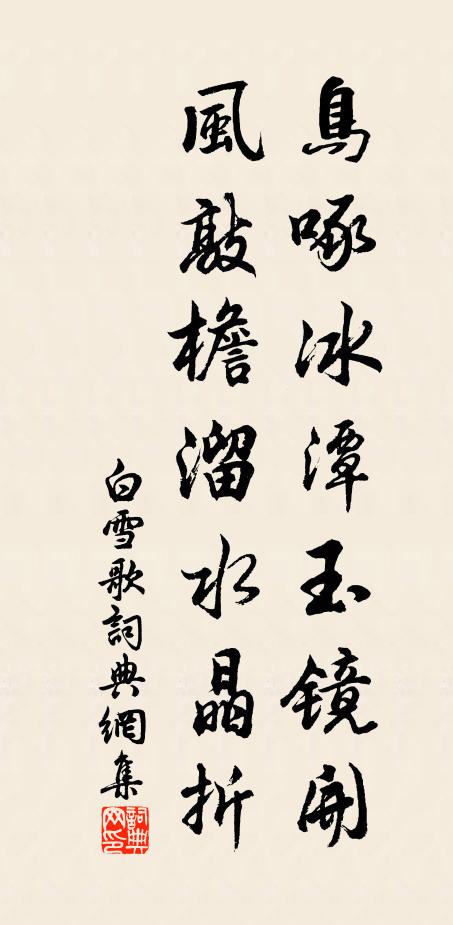 鳥啄冰潭玉鏡開
風敲檐溜水晶折
白雪歌詞典網集
詞典网印